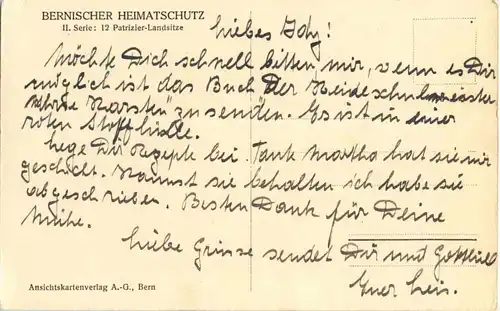 BERNISCHER HEIMATSCHUTZ
II. Serie: 12 Patrizier-Landsitze
Liebes Idy!
Möchte Dich schnell bitten mir, wenn es Dir
möglich ist das Buch „Der Heideschulmeister
Uwe Karsten" zu senden. Es ist in einer
roten Stoffhülle.
Lege Dir Rezepte bei. Tante Martha hat sie mir
geschickt. Kannst sie behalten ich habe sie
abgeschrieben. Besten Dank für Deine
Mühe.
Liebe Grüsse sendet Dir und Gottlieb
Euer
Ansichtskartenverlag A.-G., Bern